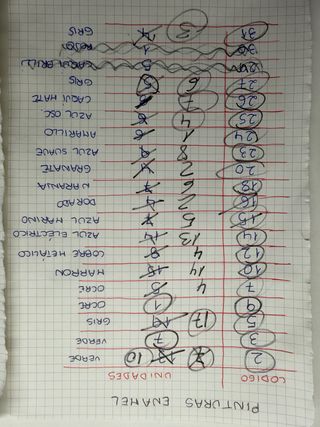 PINTURAS ENAMEL
CODIGO UNIDADES
2 10 VERDE
3 7 VERDE
5 17 GRIS
9 1 OCRE
7 4 5 OCRE
10 14 15 MARRON
12 4 8 COBRE METALICO
14 13 14 AZUL ELÉCTRICO
15 5 7 AZUL MARINO
16 2 4 DORADO
18 6 7 NARANJA
20 2 4 GRANATE
23 8 9 AZUL SUAVE
24 1 AMARILLO
25 4 AZUL OSC
26 7 CAQUI MATE
27 6 5 GRIS
5 CAQUI BRILL
30 1
31 3 4 GRIS